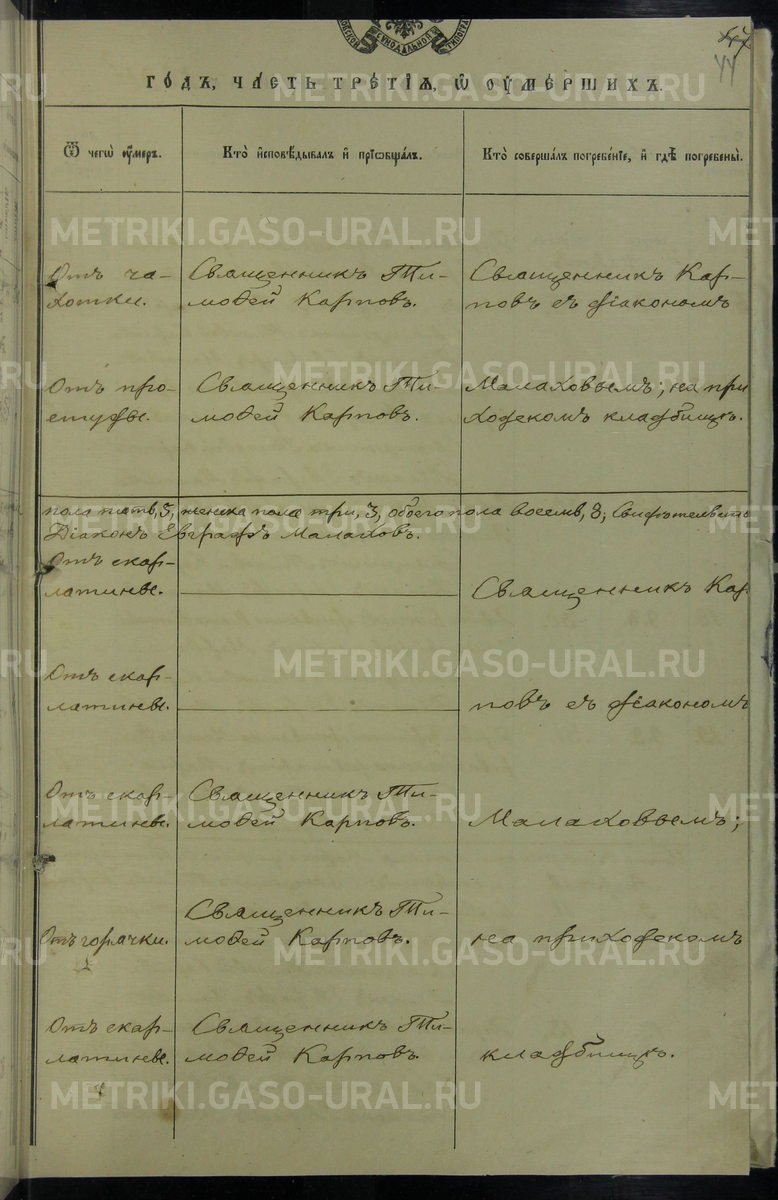 44
ГО́ДЪ, ЧА́СТЬ ТРЕ́ТІѦ, Ѡ ОУ҆МЕ́РШИХЪ.
Ѿ чегѡ̀ оу҆́меръ.
Кто̀ и҆сповѣ́дывалъ и҆ прїѡбща́лъ.
Кто̀ соверша́лъ погребе́нїе, и҆ гдѣ̀ погребены̀.
Отъ ча-
хотки.
Священникъ Ти-
моѳей Карповъ.
Священникъ Кар-
повъ съ діакономъ
Отъ про-
студы.
Священникъ Ти-
моѳей Карповъ.
Малаховымъ; на при
ходскомъ кладбищѣ.
пола пять, 5, женска пола три, 3, обоего пола восемь, 8; Свидѣтельств
Діаконъ Евграфъ Малаховъ.
Отъ скар-
латины.
Священникъ Кар
Отъ скар-
латины.
повъ съ діакономъ
Отъ скар-
латины.
Священникъ Ти-
моѳей Карповъ.
Малаховымъ;
Отъ горячки.
Священникъ Ти-
моѳей Карповъ.
на приходскомъ
Отъ скар-
латины.
Священникъ Ти-
моѳей Карповъ.
кладбищѣ.
METRIKI.GASO-URAL.RU